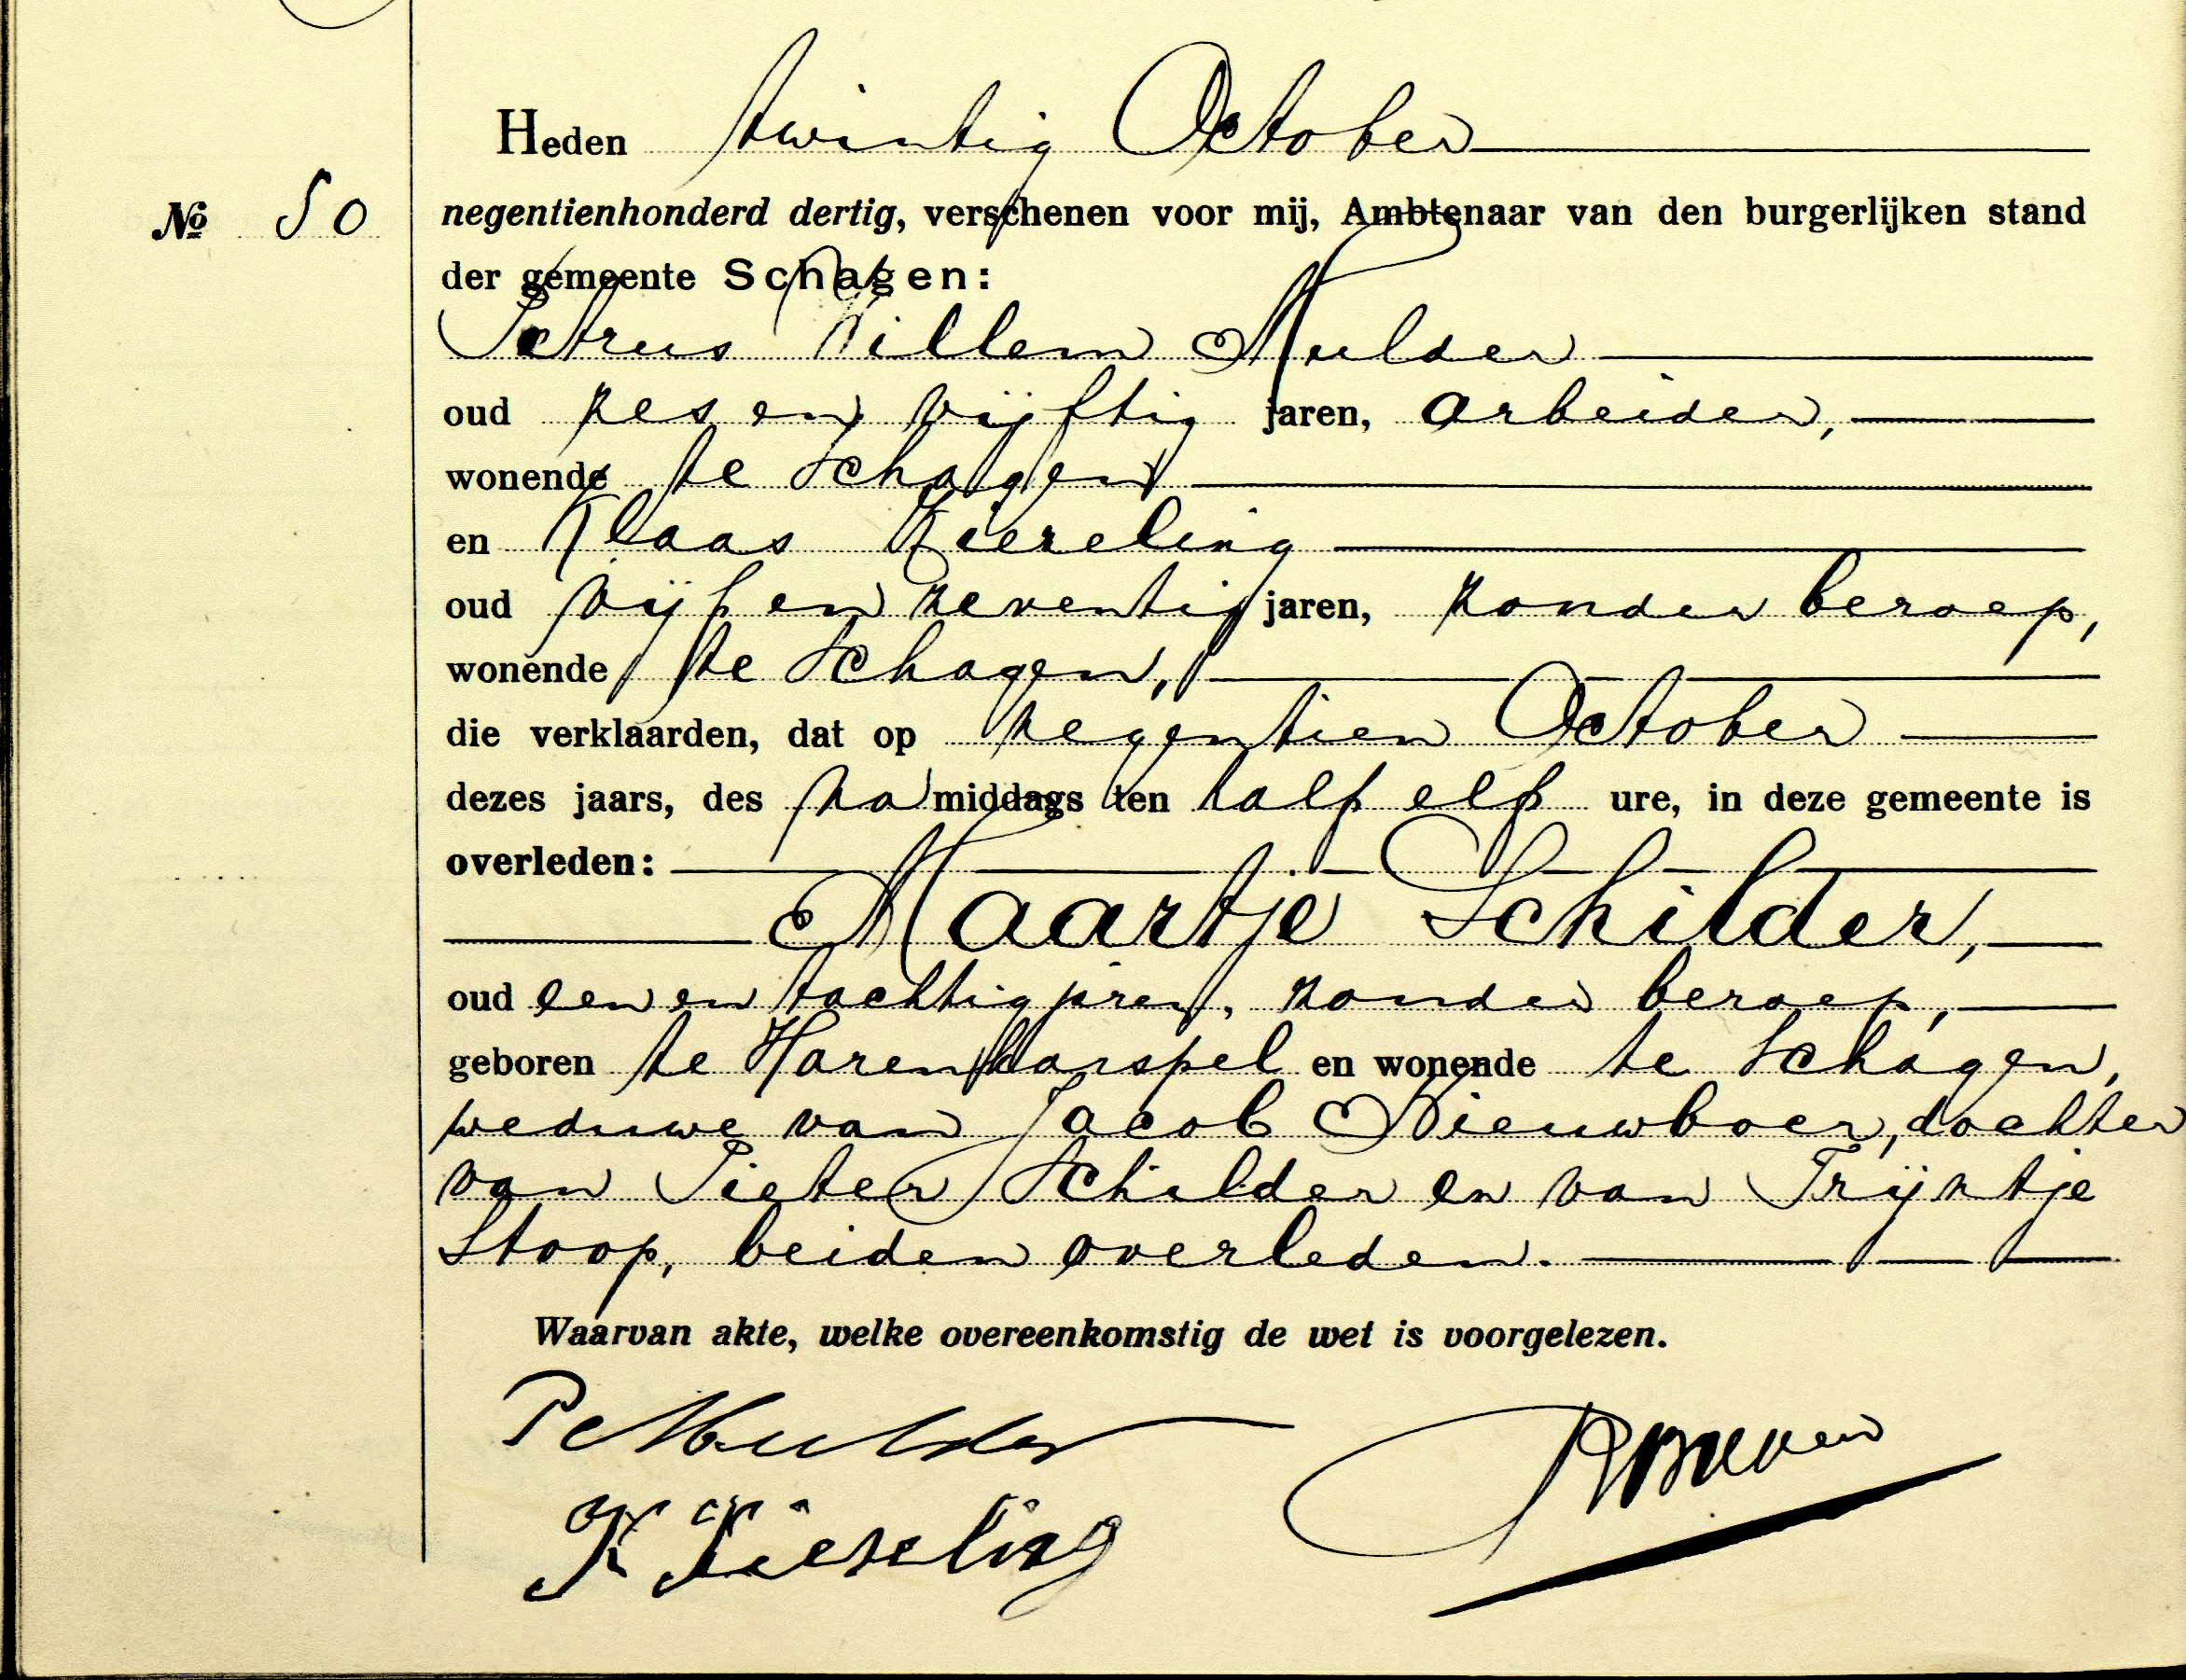 Heden twintig October
№ 50 negentienhonderd dertig, verschenen voor mij, Ambtenaar van den burgerlijken stand
der gemeente Schagen:
Petrus Willem Mulder
oud zes en vijftig jaren, arbeider,
wonende te Schagen
en Klaas Kiereling
oud vijf en zeventig jaren, zonder beroep,
wonende te Schagen,
die verklaarden, dat op negentien October
dezes jaars, des namiddags ten half elf ure, in deze gemeente is
overleden:
Maartje Schilder,
oud een en tachtig jaren, zonder beroep,
geboren te Harenkarspel en wonende te Schagen,
weduwe van Jacob Nieuwboer, dochter
van Pieter Schilder en van Trijntje
Stoop, beiden overleden.
Waarvan akte, welke overeenkomstig de wet is voorgelezen.
Mulder
K Kiereling